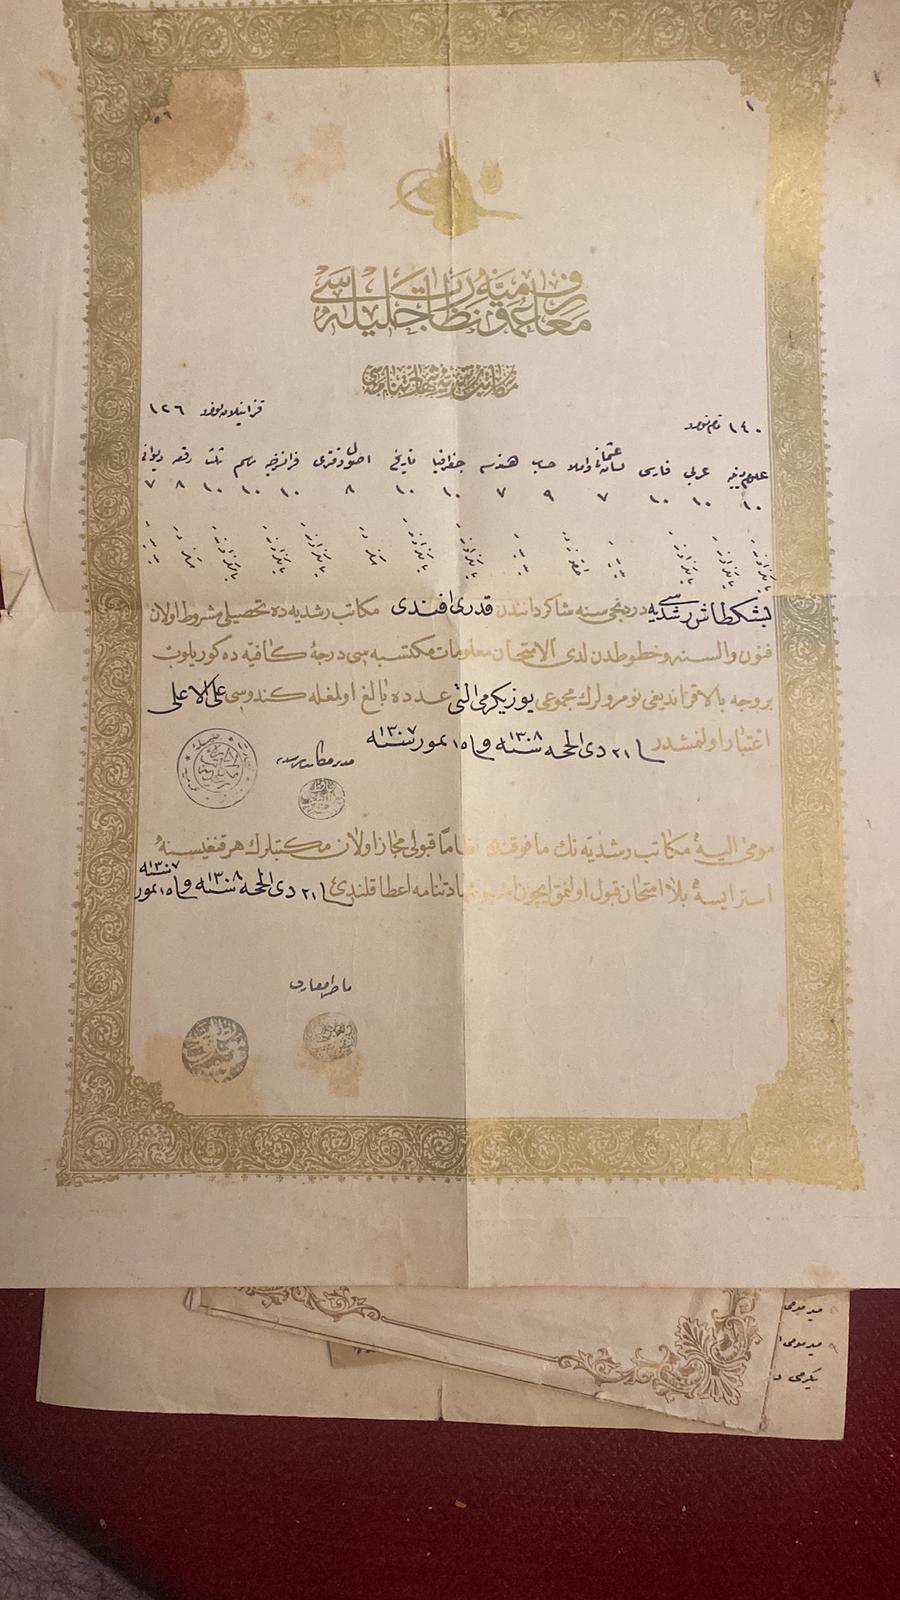 معارف عموميه نظارت جليله سى
مكاتب رشديه شهادتنامه سى
١٤٠ تام نومرو
قزانيلان نومرو ١٢٦
علوم دينيه عربى فارسى لسان عثمانى واملا حساب هندسه جغرافيا تاريخ اصول دفترى فرانسزجه رسم ثلث رقعه ديوانى
١٠ ١٠ ١٠ ٧ ٩ ٧ ١٠ ١٠ ٨ ١٠ ١٠ ١٠ ٨ ٧
بشكطاش رشديه سى دردنجى سنه شاكردانندن قدرى افندى مكاتب رشديه ده تحصيلى مشروط اولان
فنون والسنه وخطوطدن لدى الامتحان معلومات مكتسبه سى درجۀ كافيه ده كوريلوب
بروجه بالا قزانديغى نومرولرك مجموعى يوز يكرمى التى عدده بالغ اولمغله كندوسى على الاعلى
اعتبار اولنمشدر ٢١ ذى الحجه سنه ١٣٠٨ و ١٥ تموز سنه ١٣٠٧
مدير مكاتب رشديه
مومى اليه مكاتب رشديه نك مافوقنده نظاماً قبولى مجاز اولان مكتبلرك هر قنغيسنه
استر ايسه بلا امتحان قبول اولنمق ايچون اشبو شهادتنامه اعطا قلندى ٢١ ذى الحجه سنه ١٣٠٨ و ١٥ تموز سنه ١٣٠٧
ناظر معارف